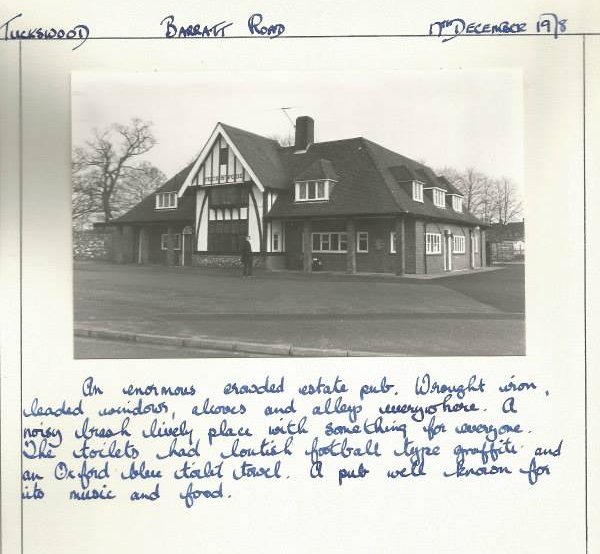 Tuckswood Barratt Road 17th December 1978
An enormous crowded estate pub. Wrought iron,
leaded windows, alcoves and alleys everywhere. A
noisy brash lively place with something for everyone.
The toilets had loutish football type graffiti and
an Oxford blue toilet towel. A pub well known for
its music and food.